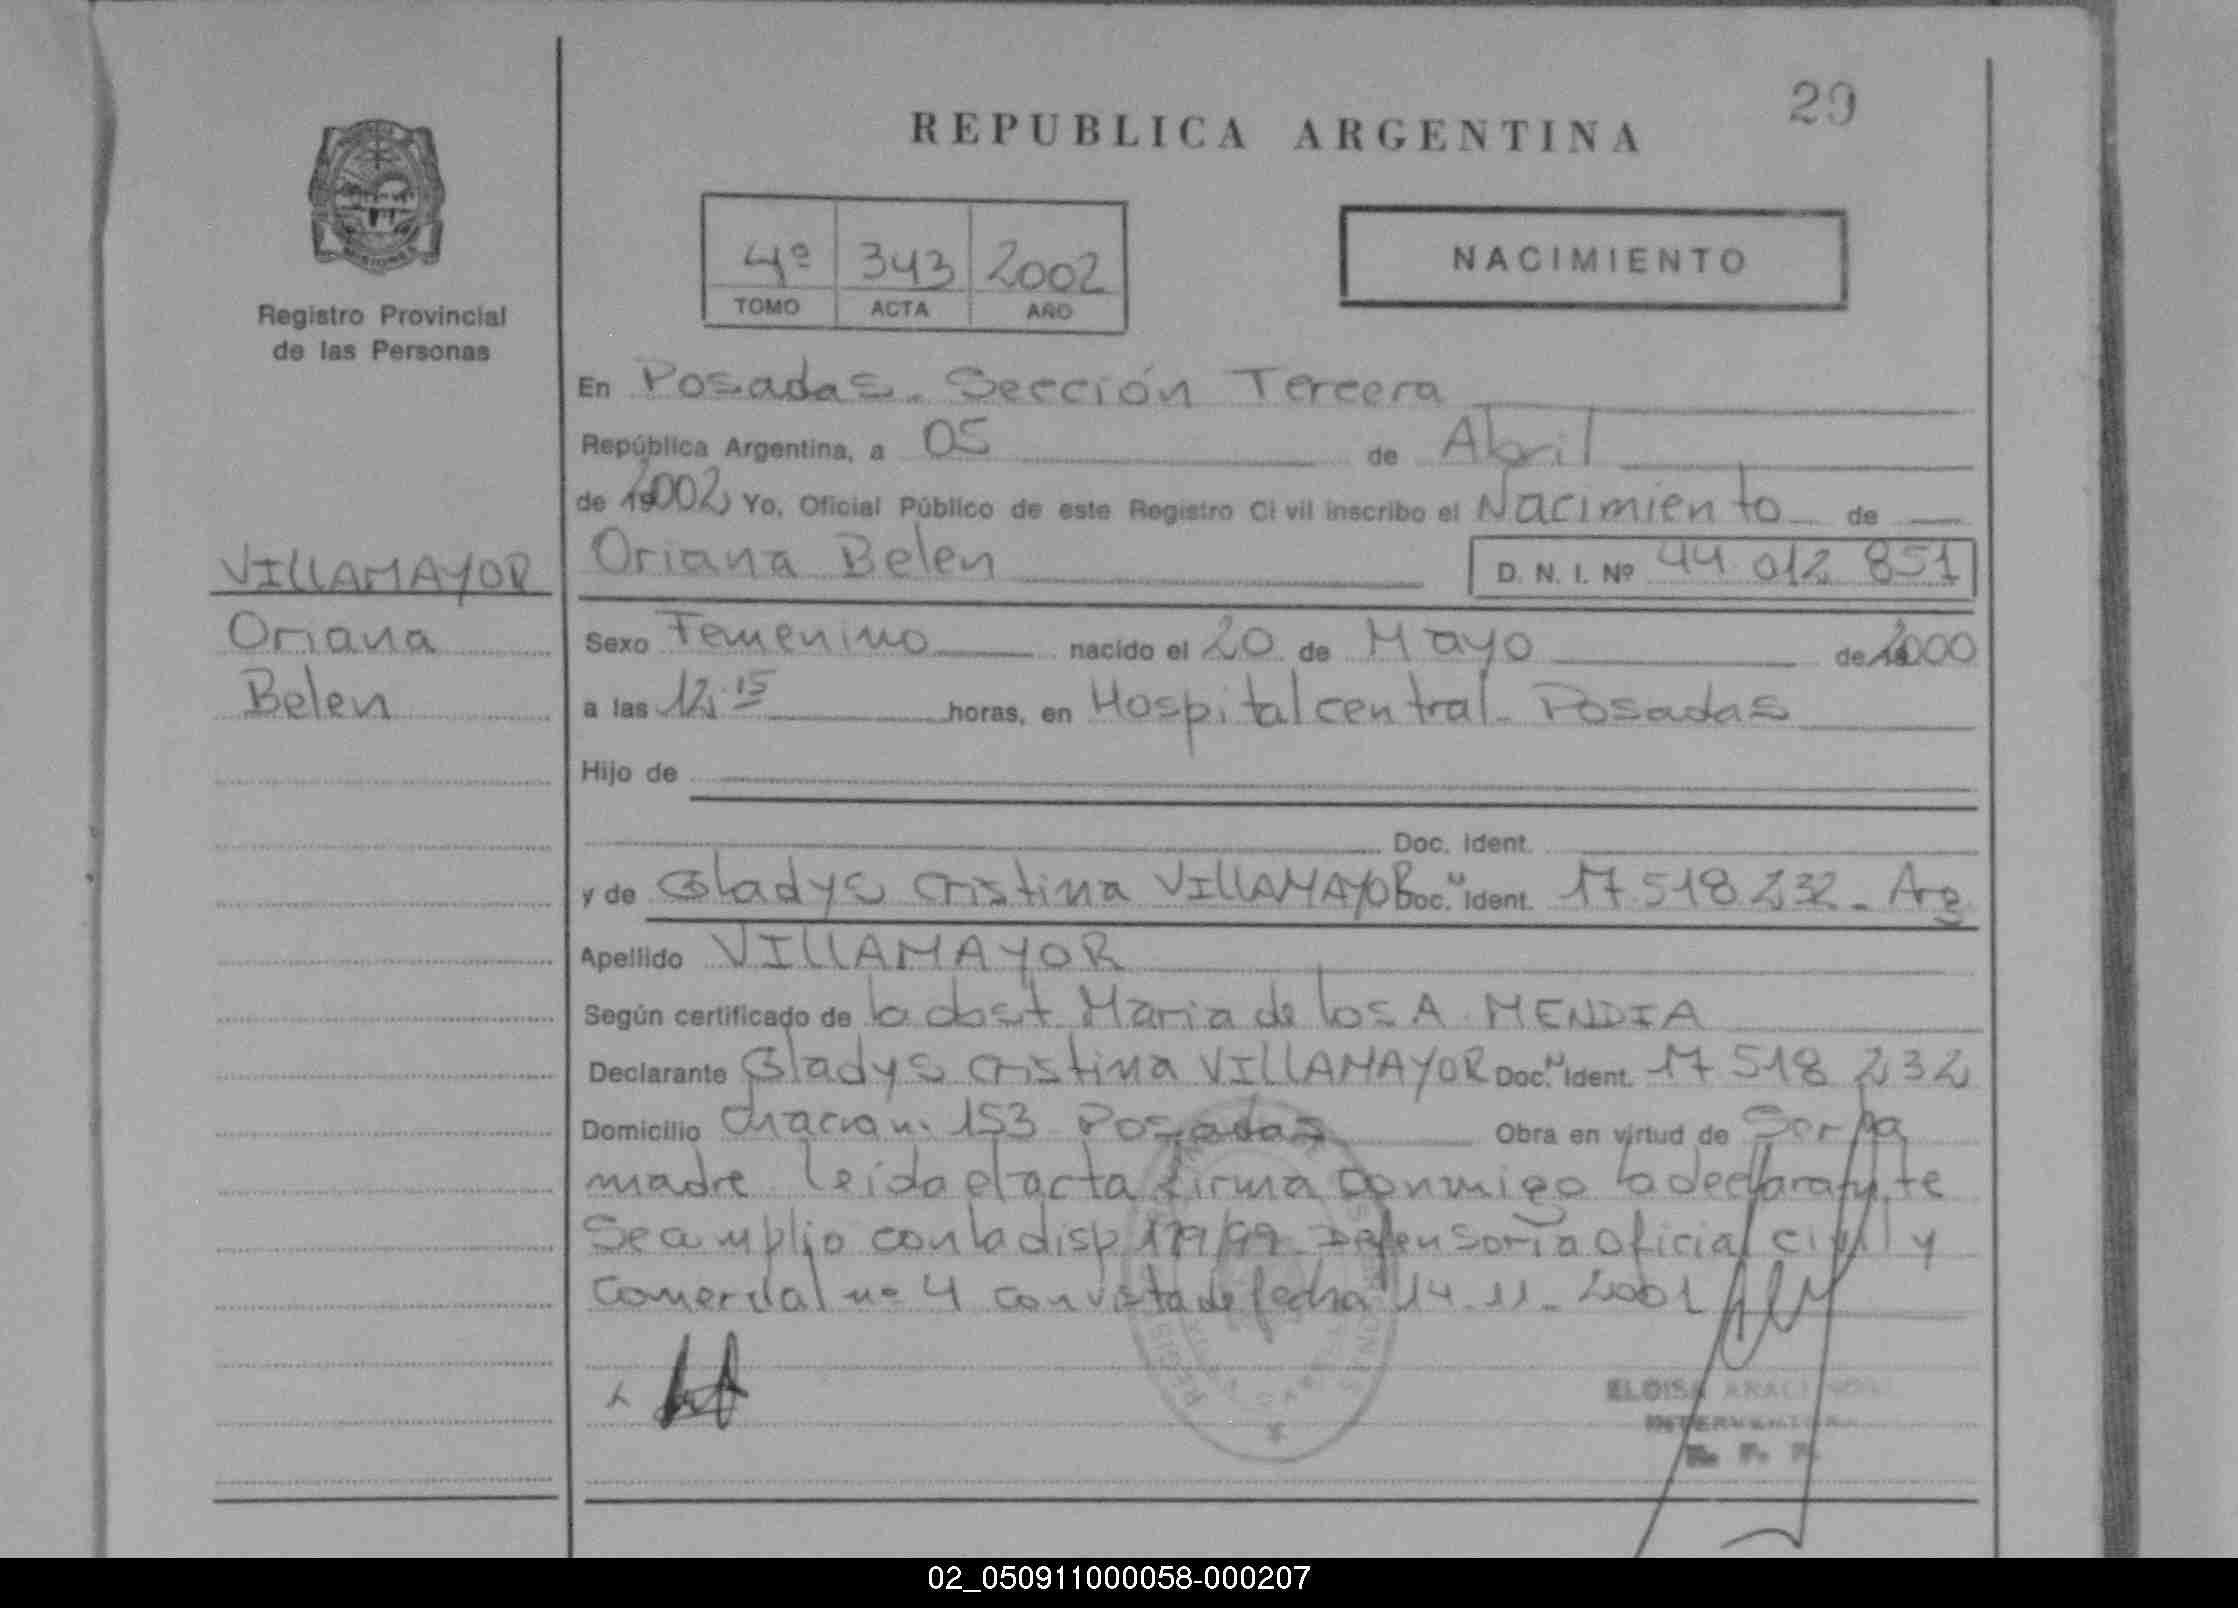 29
REPUBLICA ARGENTINA
4º 343 2002
TOMO ACTA AÑO
NACIMIENTO
Registro Provincial
de las Personas
En Posadas. Sección Tercera
República Argentina, a 05 de Abril
de 2002 Yo, Oficial Público de este Registro Civil inscribo el Nacimiento de
VILLAMAYOR
Oriana
Belen
Oriana Belen D. N. I. Nº 44 012 851
Sexo Femenino nacido el 20 de Mayo de 2000
a las 12:15 horas, en Hospital central. Posadas
Hijo de
Doc. Ident.
y de Gladys Cristina VILLAMAYOR Doc. Ident. 17.518 232. Arg
Apellido VILLAMAYOR
Según certificado de la obst. Maria de los A. MENDIA
Declarante Gladys Cristina VILLAMAYOR Doc. Ident. 17 518 232
Domicilio 153 Posadas Obra en virtud de Ser la
madre. leída el acta firma conmigo la declarante
Se amplio con la disp 179/99 Defensoria Oficial civil y
Comercial nº 4 con vista de fecha 14.11.2001
ELOISA
INTERVENTORA
R. P. P.
02_050911000058-000207